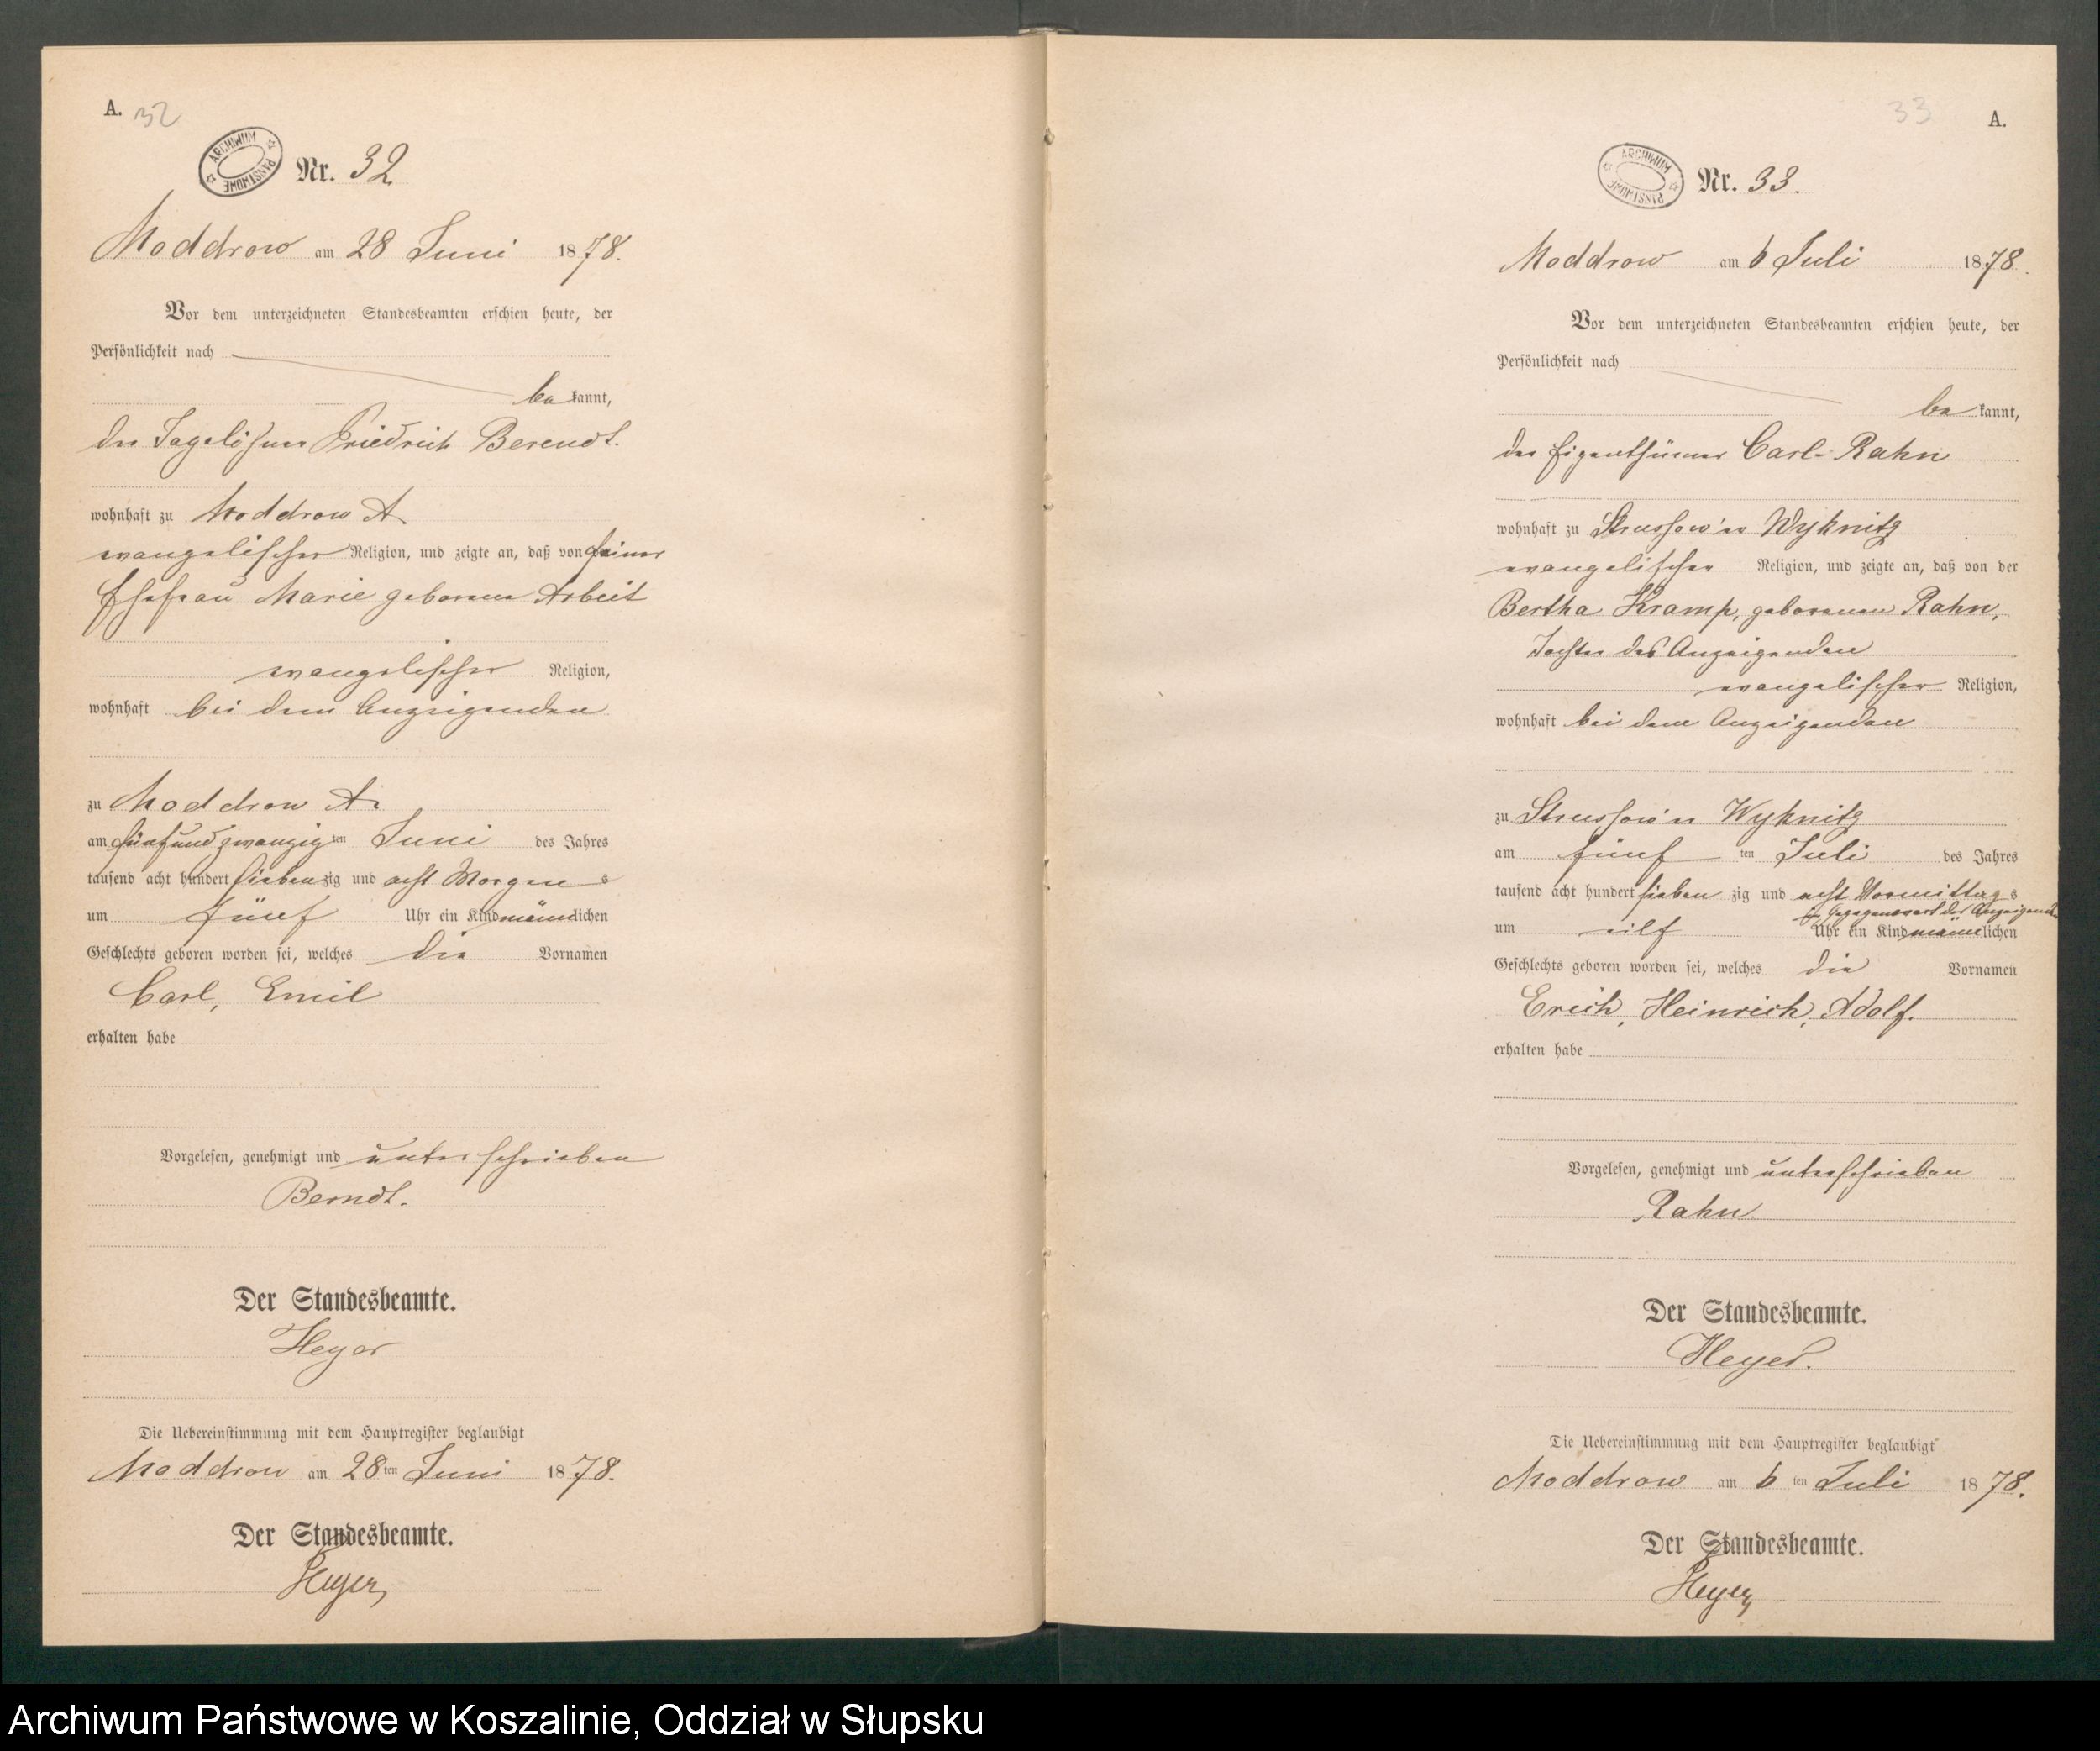 A. 32
ARCHIWUM PAŃSTWOWE
Nr. 32
Moddrow am 28 Juni 1878.
Vor dem unterzeichneten Standesbeamten erschien heute, der
Persönlichkeit nach
be kannt,
der Tagelöhner Friedrich Berendt.
wohnhaft zu Moddrow A.
evangelischer Religion, und zeigte an, daß von seiner
Ehefrau Marie geborene Arbeit
evangelischer Religion,
wohnhaft bei dem Anzeigenden
zu Moddrow A.
am fünfundzwanzig ten Juni des Jahres
tausend acht hundert sieben zig und acht Morgens
um fünf Uhr ein Kind männlichen
Geschlechts geboren worden sei, welches die Vornamen
Carl, Emil
erhalten habe
Vorgelesen, genehmigt und unterschrieben
Berndt.
Der Standesbeamte.
Heyer
Die Uebereinstimmung mit dem Hauptregister beglaubigt
Moddrow am 28ten Juni 1878.
Der Standesbeamte.
Heyer
33 A.
ARCHIWUM PAŃSTWOWE
Nr. 33.
Moddrow am 6 Juli 1878.
Vor dem unterzeichneten Standesbeamten erschien heute, der
Persönlichkeit nach
be kannt,
der Eigenthümer Carl Rahn
wohnhaft zu Strussow'er Wyknitz
evangelischer Religion, und zeigte an, daß von der
Bertha Kramp, geborenen Rahn,
Tochter des Anzeigenden
evangelischer Religion,
wohnhaft bei dem Anzeigenden
zu Strussow'er Wyknitz
am fünf ten Juli des Jahres
tausend acht hundert sieben zig und acht Vormittags
in Gegenwart des Anzeigende
um eilf Uhr ein Kind männlichen
Geschlechts geboren worden sei, welches die Vornamen
Erich, Heinrich, Adolf.
erhalten habe
Vorgelesen, genehmigt und unterschrieben
Rahn.
Der Standesbeamte.
Heyer.
Die Uebereinstimmung mit dem Hauptregister beglaubigt
Moddrow am 6 ten Juli 1878.
Der Standesbeamte.
Heyer
Archiwum Państwowe w Koszalinie, Oddział w Słupsku